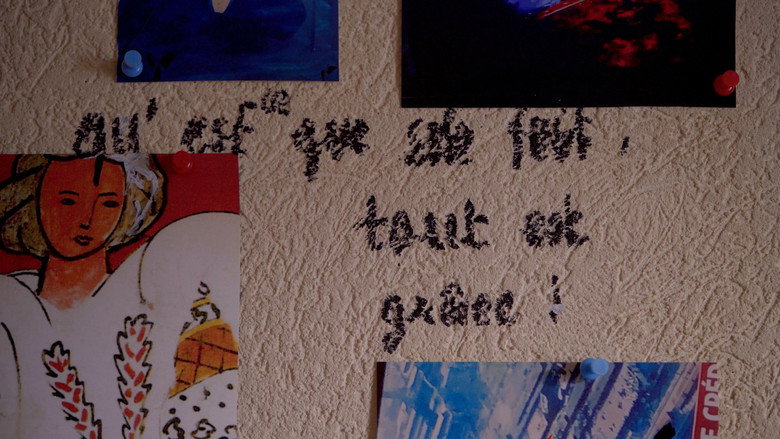 qu'est ce que cela fait,
tout est
grâce !
E CRÉD